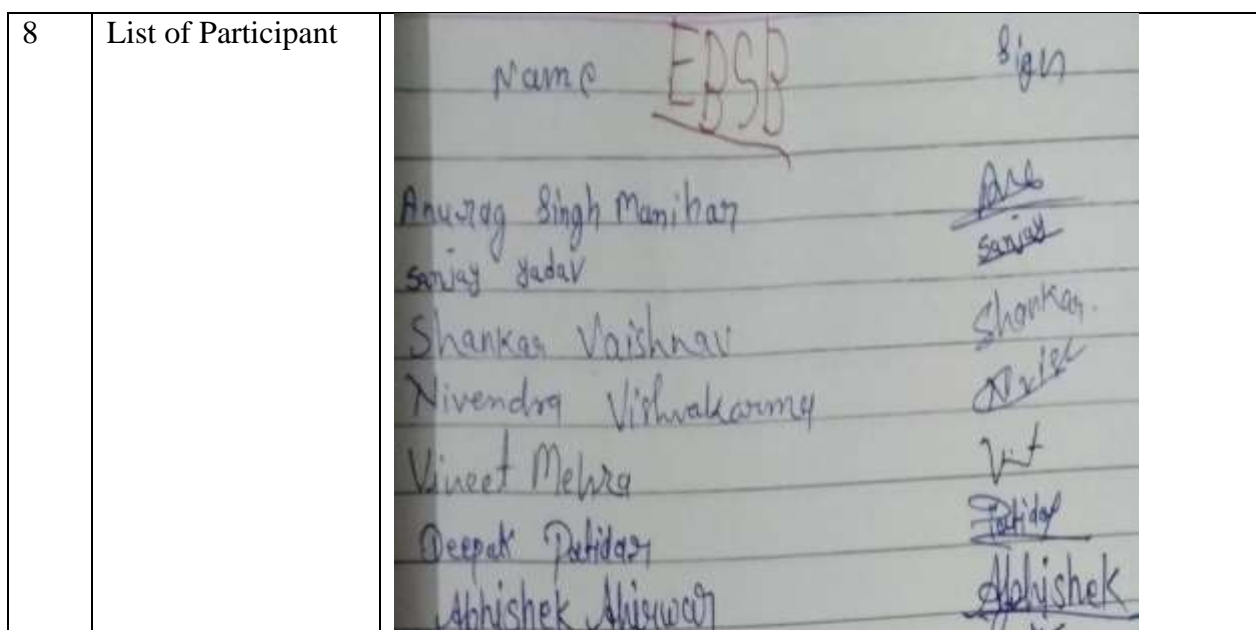 8 List of Participant
Name EBSB Sign
Anurag Singh Manihar
Sanjay Yadav Sanjay
Shankar Vaishnav Shankar.
Nivendra Vishvakarma
Vineet Mehra
Deepak Patidar Patidar
Abhishek Ahirwar Abhishek